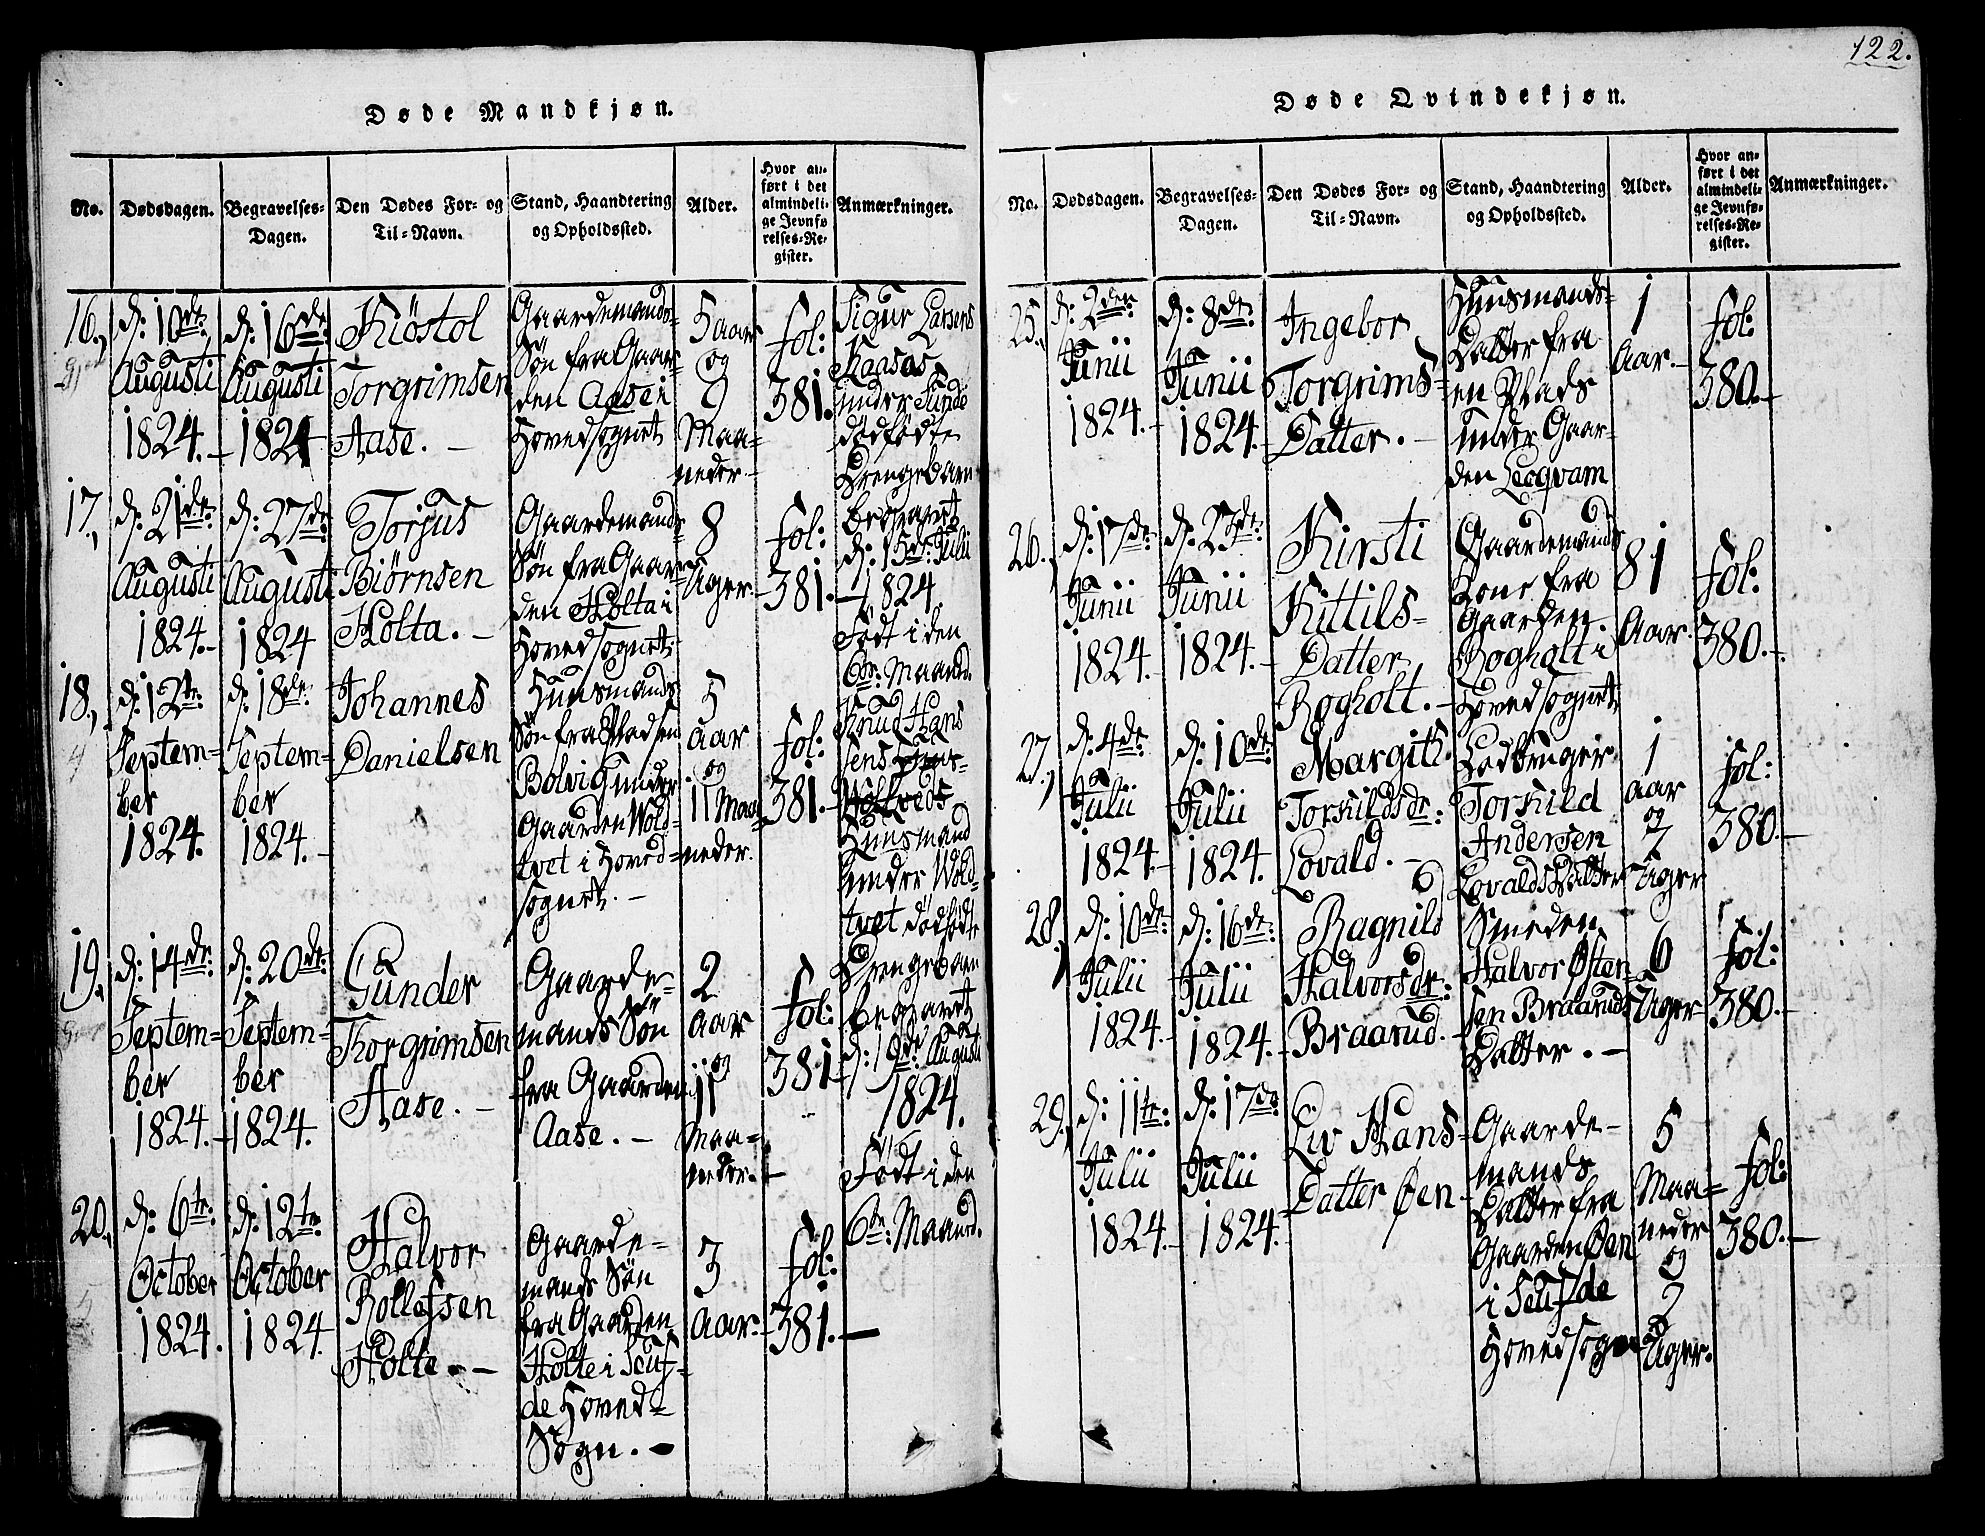 122.
Døde Mandkjøn.
No.
Dødsdagen.
Begravelses-
Dagen.
Den Dødes For- og
Til-Navn.
Stand, Haandtering
og Opholdssted.
Alder.
Hvor an-
ført i det
almindeli-
ge Jevnfø-
relses-Re-
gister.
Anmærkninger.
16.,
d: 10de:
Augusti
1824.-
d: 16de:
Augusti
1824
Kiöstol
Torgrimsen
Aase. -
Gaardemands-
Søn fra Gaar-
den Aase i
Hovedsognet
5 aar
og
9
Maa-
neder.-
fol:
381.
Sigur Larsens
Kaasas
under Tunde
dödfödte
Drengebarn
begravet
d: 15de: Julii
1824
Födt i den
6te: Maaned.
17.,
d: 21de:
Augusti
1824.-
d: 27de:
Augusti
1824
Torjus
Biörnsen
Holta. -
Gaardemands
Søn fra Gaar-
den Holta i
Hovedsognet
8
Uger.
fol:
381.-
18.,
d: 12te:
Septem-
ber
1824.
d: 18de:
Septem-
ber
1824.-
Johannes
Danielsen
Huusmands
Søn fra Pladsen
Bolvig under
Gaarden Wold-
tvet i Hoved-
sognet. -
5
aar
og
11 Maa-
neder.
fol:
381.-
Knud Hans
sens
Huusmand
under Wold-
tvet dödfödte
Drengebarn
begravet
d: 19de Augusti
1824.
Födt i den
6te: Maaned.
19.,
d: 14de:
Septem-
ber
1824.-
d: 20de:
Septem-
ber
1824.
Gunder
Torgrimsen
Aase. -
Gaarde-
mands Søn
fra Gaarden
Aase. -
2
aar
og
11
Maa-
neder.-
fol:
381-
20.,
d: 6te:
October
1824.
d: 12te
October
1824
Halvor
Rollefsen
Holte. -
Gaarde-
mands Søn
fra Gaarden
Holte i Seuf-
de Hoved-
Sogn. -
3
Aar.-
fol:
381.-
Døde Qvindekjøn.
No.
Dødsdagen.
Begravelses-
Dagen.
Den Dødes For- og
Til-Navn.
Stand, Haandtering
og Opholdssted.
Alder.
Hvor an-
ført i det
almindeli-
ge Jevnfø-
relses-Re-
gister.
Anmærkninger.
25.,
d: 2den:
Junii
1824.-
d: 8de:
Junii
1824.
Ingebor
Torgrims-
Datter. -
Huusmands-
Datter fra
en Plads
under Gaar-
den Leeqvam
1
Aar.-
fol:
380.-
26.,
d: 17de:
Junii
1824.
d: 23de:
Junii
1824.-
Kirsti
Kittils-
Datter
Rogholt.-
Gaardemands
Kone fra
Gaarden
Rogholt i
Hovedsognet
81
Aar.
fol:
380.-
27.,
d: 4de:
Julii
1824.-
d: 10de:
Julii
1824.
Margith
Torkildsdr:
Lovald. -
Torkild
Andersen
Lovalds Datter
1
aar
og
7
Uger
fol:
380.-
28.,
d: 10de:
Julii
1824.
d: 16de:
Julii
1824.-
Ragnild
Halvorsdr:
Braarud.-
Smeden
Halvor Østen-
sen Braaruds
Datter. -
6
Uger
fol:
380.-
29.,
d: 11te:
Julii
1824.-
d: 17de
Julii
1824.
Liv Hans-
Datter Øen-
Gaarde-
mands
Datter fra
Gaarden Øen
i Seufde
Hovedsogn
5
Maa-
neder
og
2
Uger.
fol:
380.-